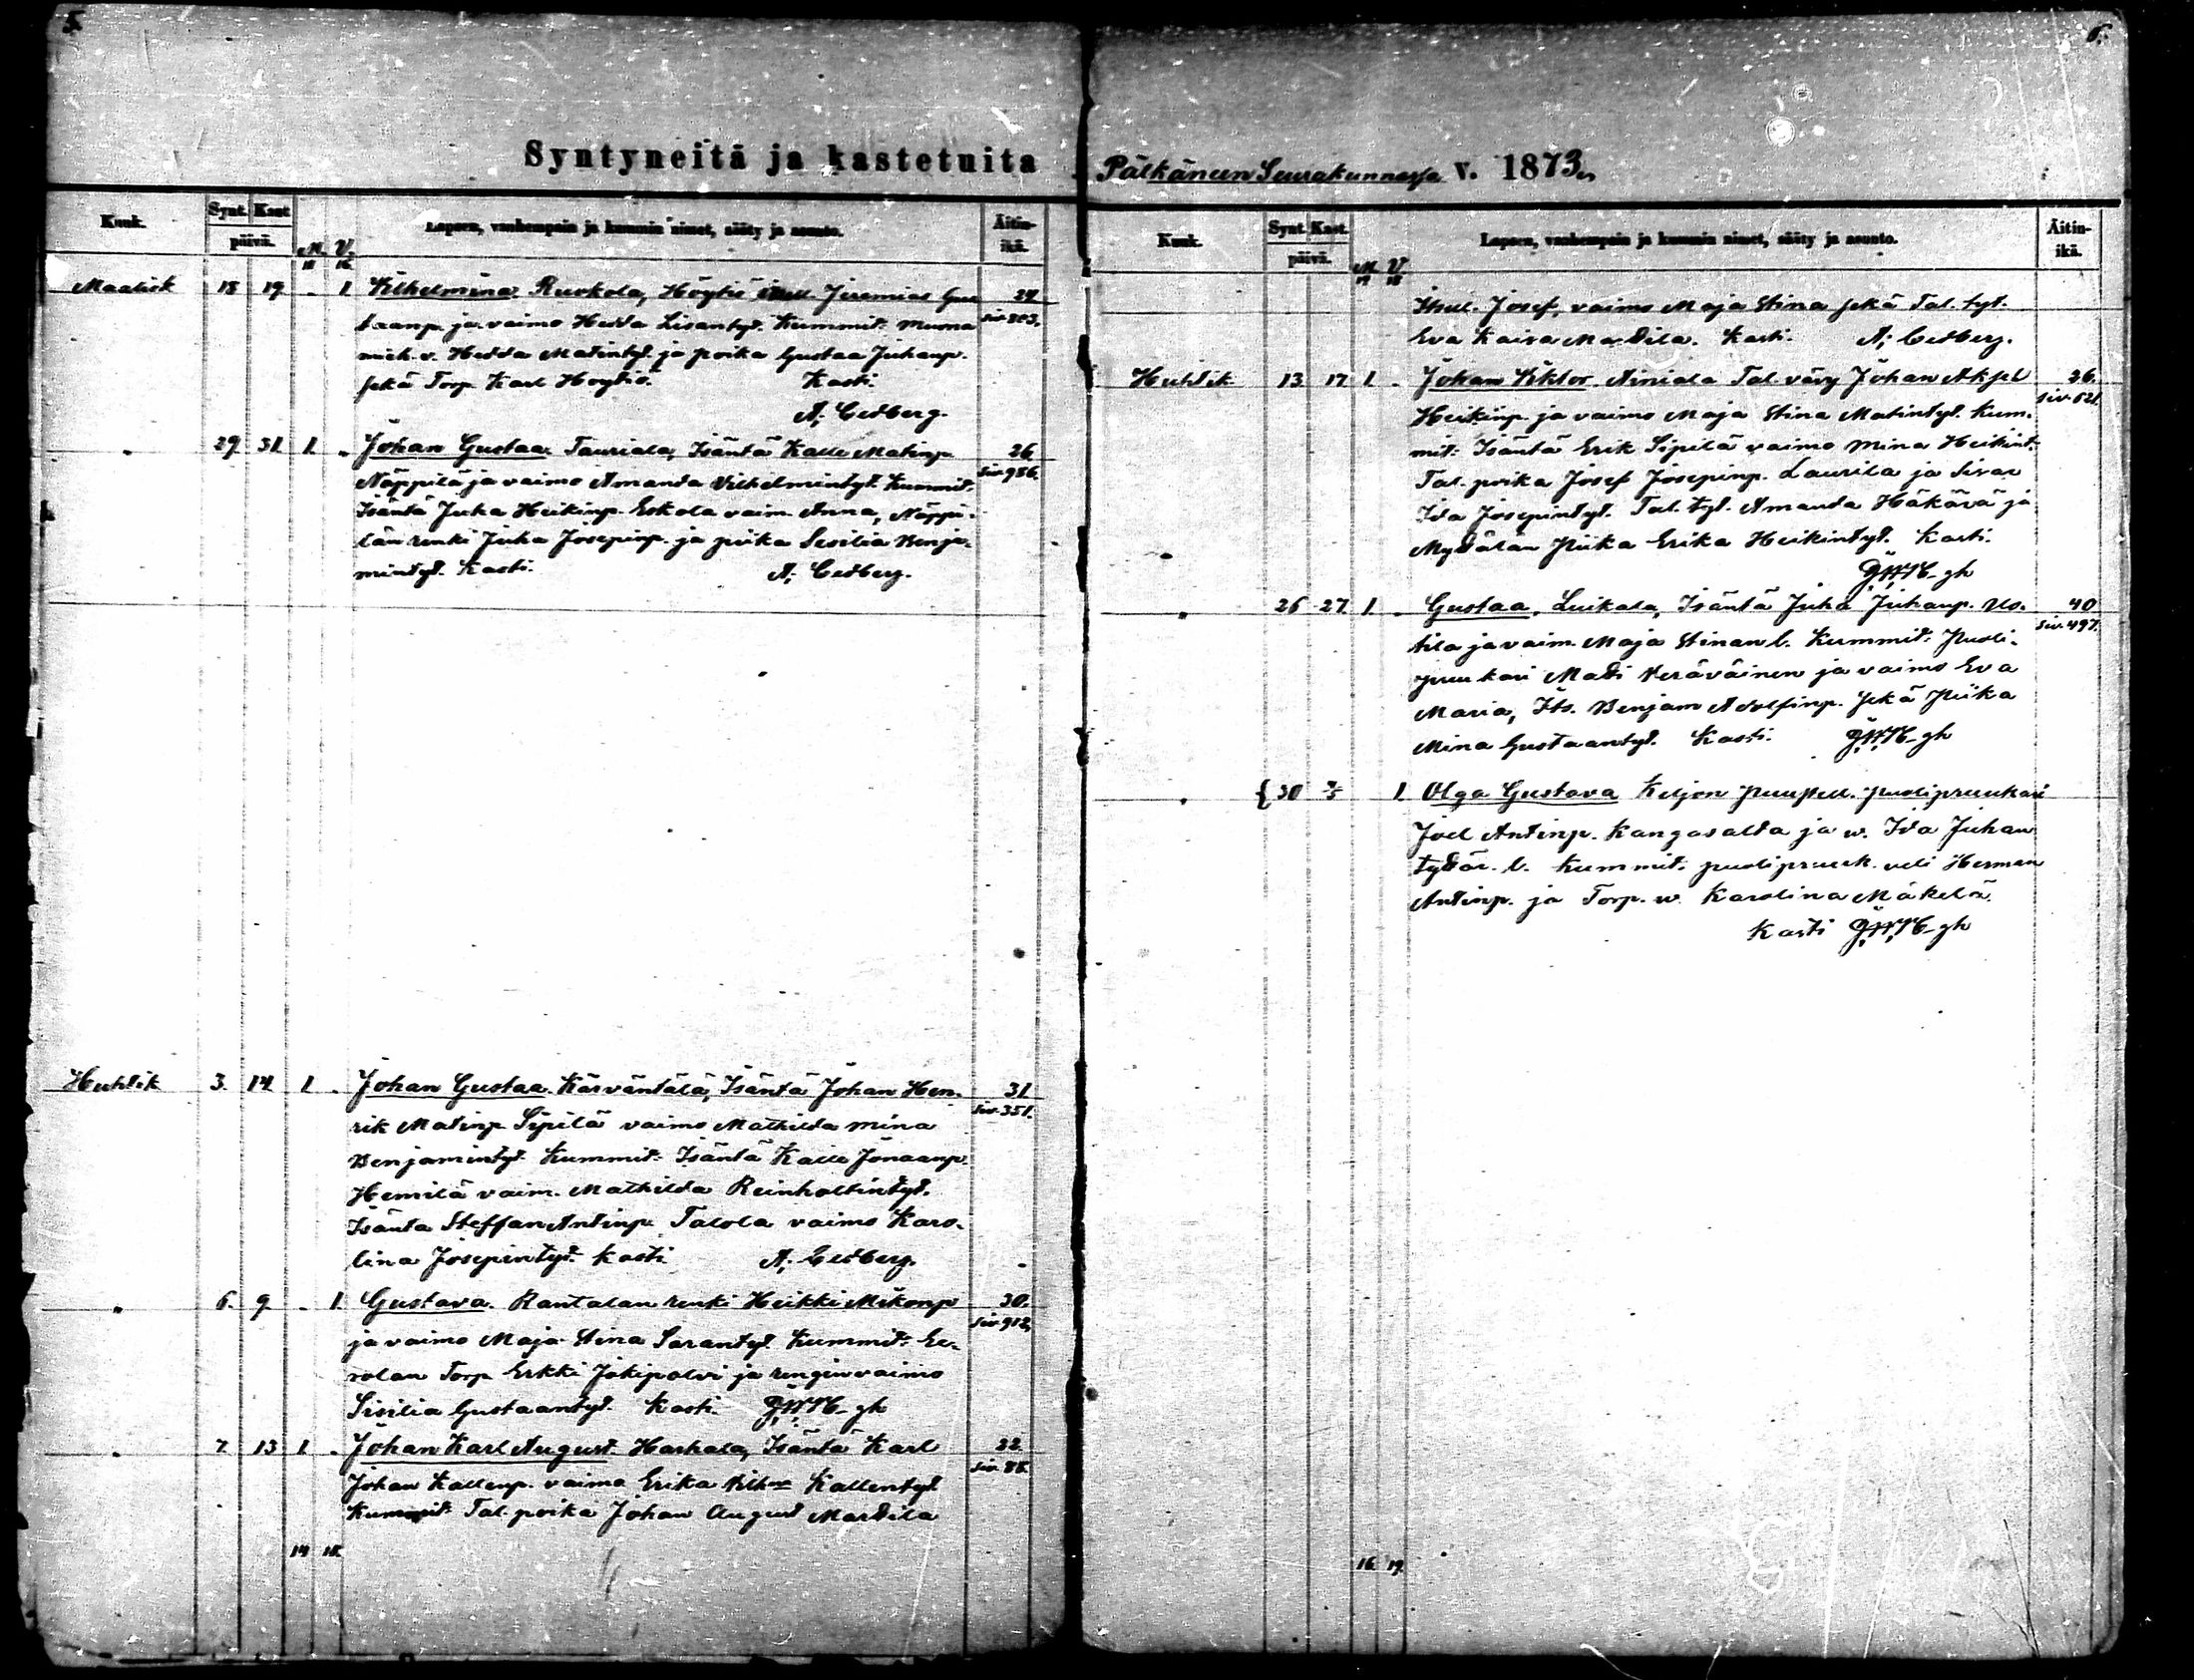 5.
Syntyneitä ja kastetuita
Kuuk. Synt. Kast. päivä. M. V. Lapsen, vanhempain ja kummin nimet, sääty ja asunto. Äitin-ikä.
Maalisk 18 19 . 1 Vilhelmina. Ruokola, Höytiö itsell. Jeremias Gus 24
taanp. ja vaimo Hedda Lisantyt. Kummit: Muona siv. 803.
mieh. v. Hedda Matintyt. ja poika Gustaa Juhanp.
sekä Torp. Karl Hoytiö. Kasti.
A; Cedberg.
" 29 31. 1. " Johan Gustaa. Tauriala, Isäntä Kalle Matinp. 26
Näppilä ja vaimo Amanda Vilhelmintyt. Kummit. siv. 986.
Isäntä Juha Heikinp. Eskola vaim. Anna, Näppi-
län renki Juha Josepinp. ja piika Sesilia Benja-
mintyt. Kasti. A; Cedberg.
Huhtik 3. 14. 1 . Johan Gustaa. Kärväntälä, Isäntä Johan Hen- 31.
rik Matinp. Sipilä vaimo Mathilda Mina siv. 351.
Benjamintyt. Kummit: Isäntä Kalle Jonaanp.
Hemilä vaim. Mathilda Reinholtintyt.
Isäntä Steffan Antinp. Talola vaimo Karo-
lina Josepintyt. Kasti A; Cedberg.
" 6. 9. . 1. Gustava. Rantalan renki Heikki Mikonp 30.
ja vaimo Maja Stina Sarantyt. Kummit: Ee- siv. 912.
rolan Torp. Erkki Jokipolvi ja renginvaimo
Sisilia Gustaantyt. Kasti.
" 7. 13 1 . Johan Karl August. Harhala, Isäntä Karl 22
Johan Kallenp. vaimo Erika Vilh. Kallentyt siv. 88.
Kummit: Tal. poika Johan August Marttila
14 18.
6.
Pälkäneen Seurakunnassa v. 1873.
Kuuk. Synt. Kast. päivä. M. V. Lapsen, vanhempain ja kummin nimet, sääty ja asunto. Äitin-ikä.
Itsell. Josef, vaimo Maja Stina sekä Tal. tyt.
Eva Kaisa Marttila. Kasti. A; Cedberg.
Huhtik. 13. 17. 1. . Johan Viktor. Ainiala Tal. vävy Johan Aksel 26.
Heikinp. ja vaimo Maja Stina Matintyt. Kum- siv. 521.
mit: Isäntä Erik Sipilä vaimo Mina Heikint.
Tal. poika Josef Josepinp. Laurila ja Sisar
Ida Josepintyt. Tal. tyt. Amanda Häkärä ja
Myttälän Piika Erika Heikintyt. Kasti.
" 26 27. 1. . Gustaa, Luikala, Isäntä Juha Juhanp. Uo- 40
tila ja vaim. Maja Stinan l. Kummit: Puoli- siv. 497.
pruukari Matti Peräväinen ja vaimo Eva
Maria, Its. Benjam Adolfinp. sekä Piika
Mina Gustaantyt. Kasti.
" { 30 4/5 1. Olga Gustava Keljon puustell. puolipruukari
Joel Antinp. Kangasalta ja w. Ida Juhan
tyttär. l. Kummit: puolipruuk. veli Herman
Antinp. ja Torp. w. Karolina Mäkelä.
Kasti
16. 19.